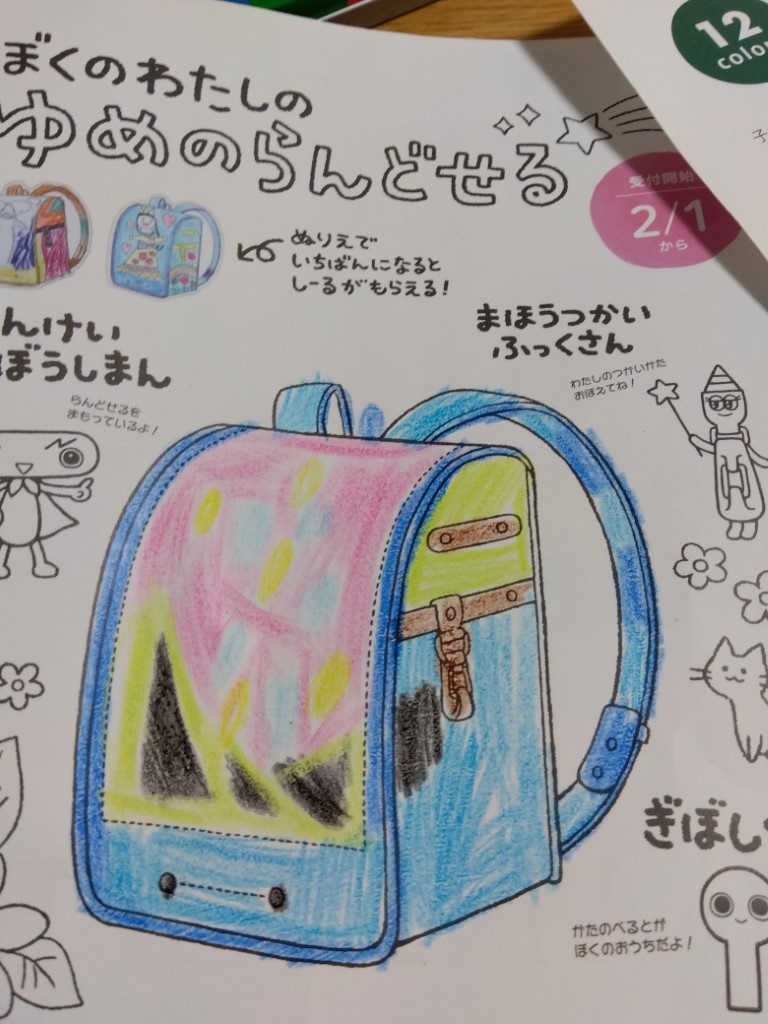 ぼくのわたしの
ゆめのらんどせる
12
color
子
受付開始
2/1
から
ぬりえで
いちばんになると
しーるがもらえる!
んけい
ぼうしまん
らんどせるを
まもっているよ!
まほうつかい
ふっくさん
わたしのつかいかた
おぼえてね!
ぎぼし
かたのべるとが
ぼくのおうちだよ!